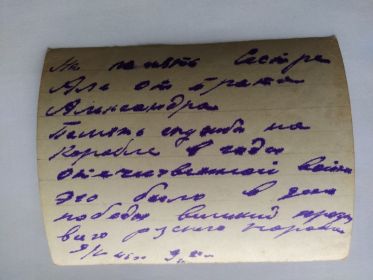 На память Сестре
Але от брата
Александра
Память службы на
Корабле в годы
отечественной войны
это было в день
победы великий
руского народа